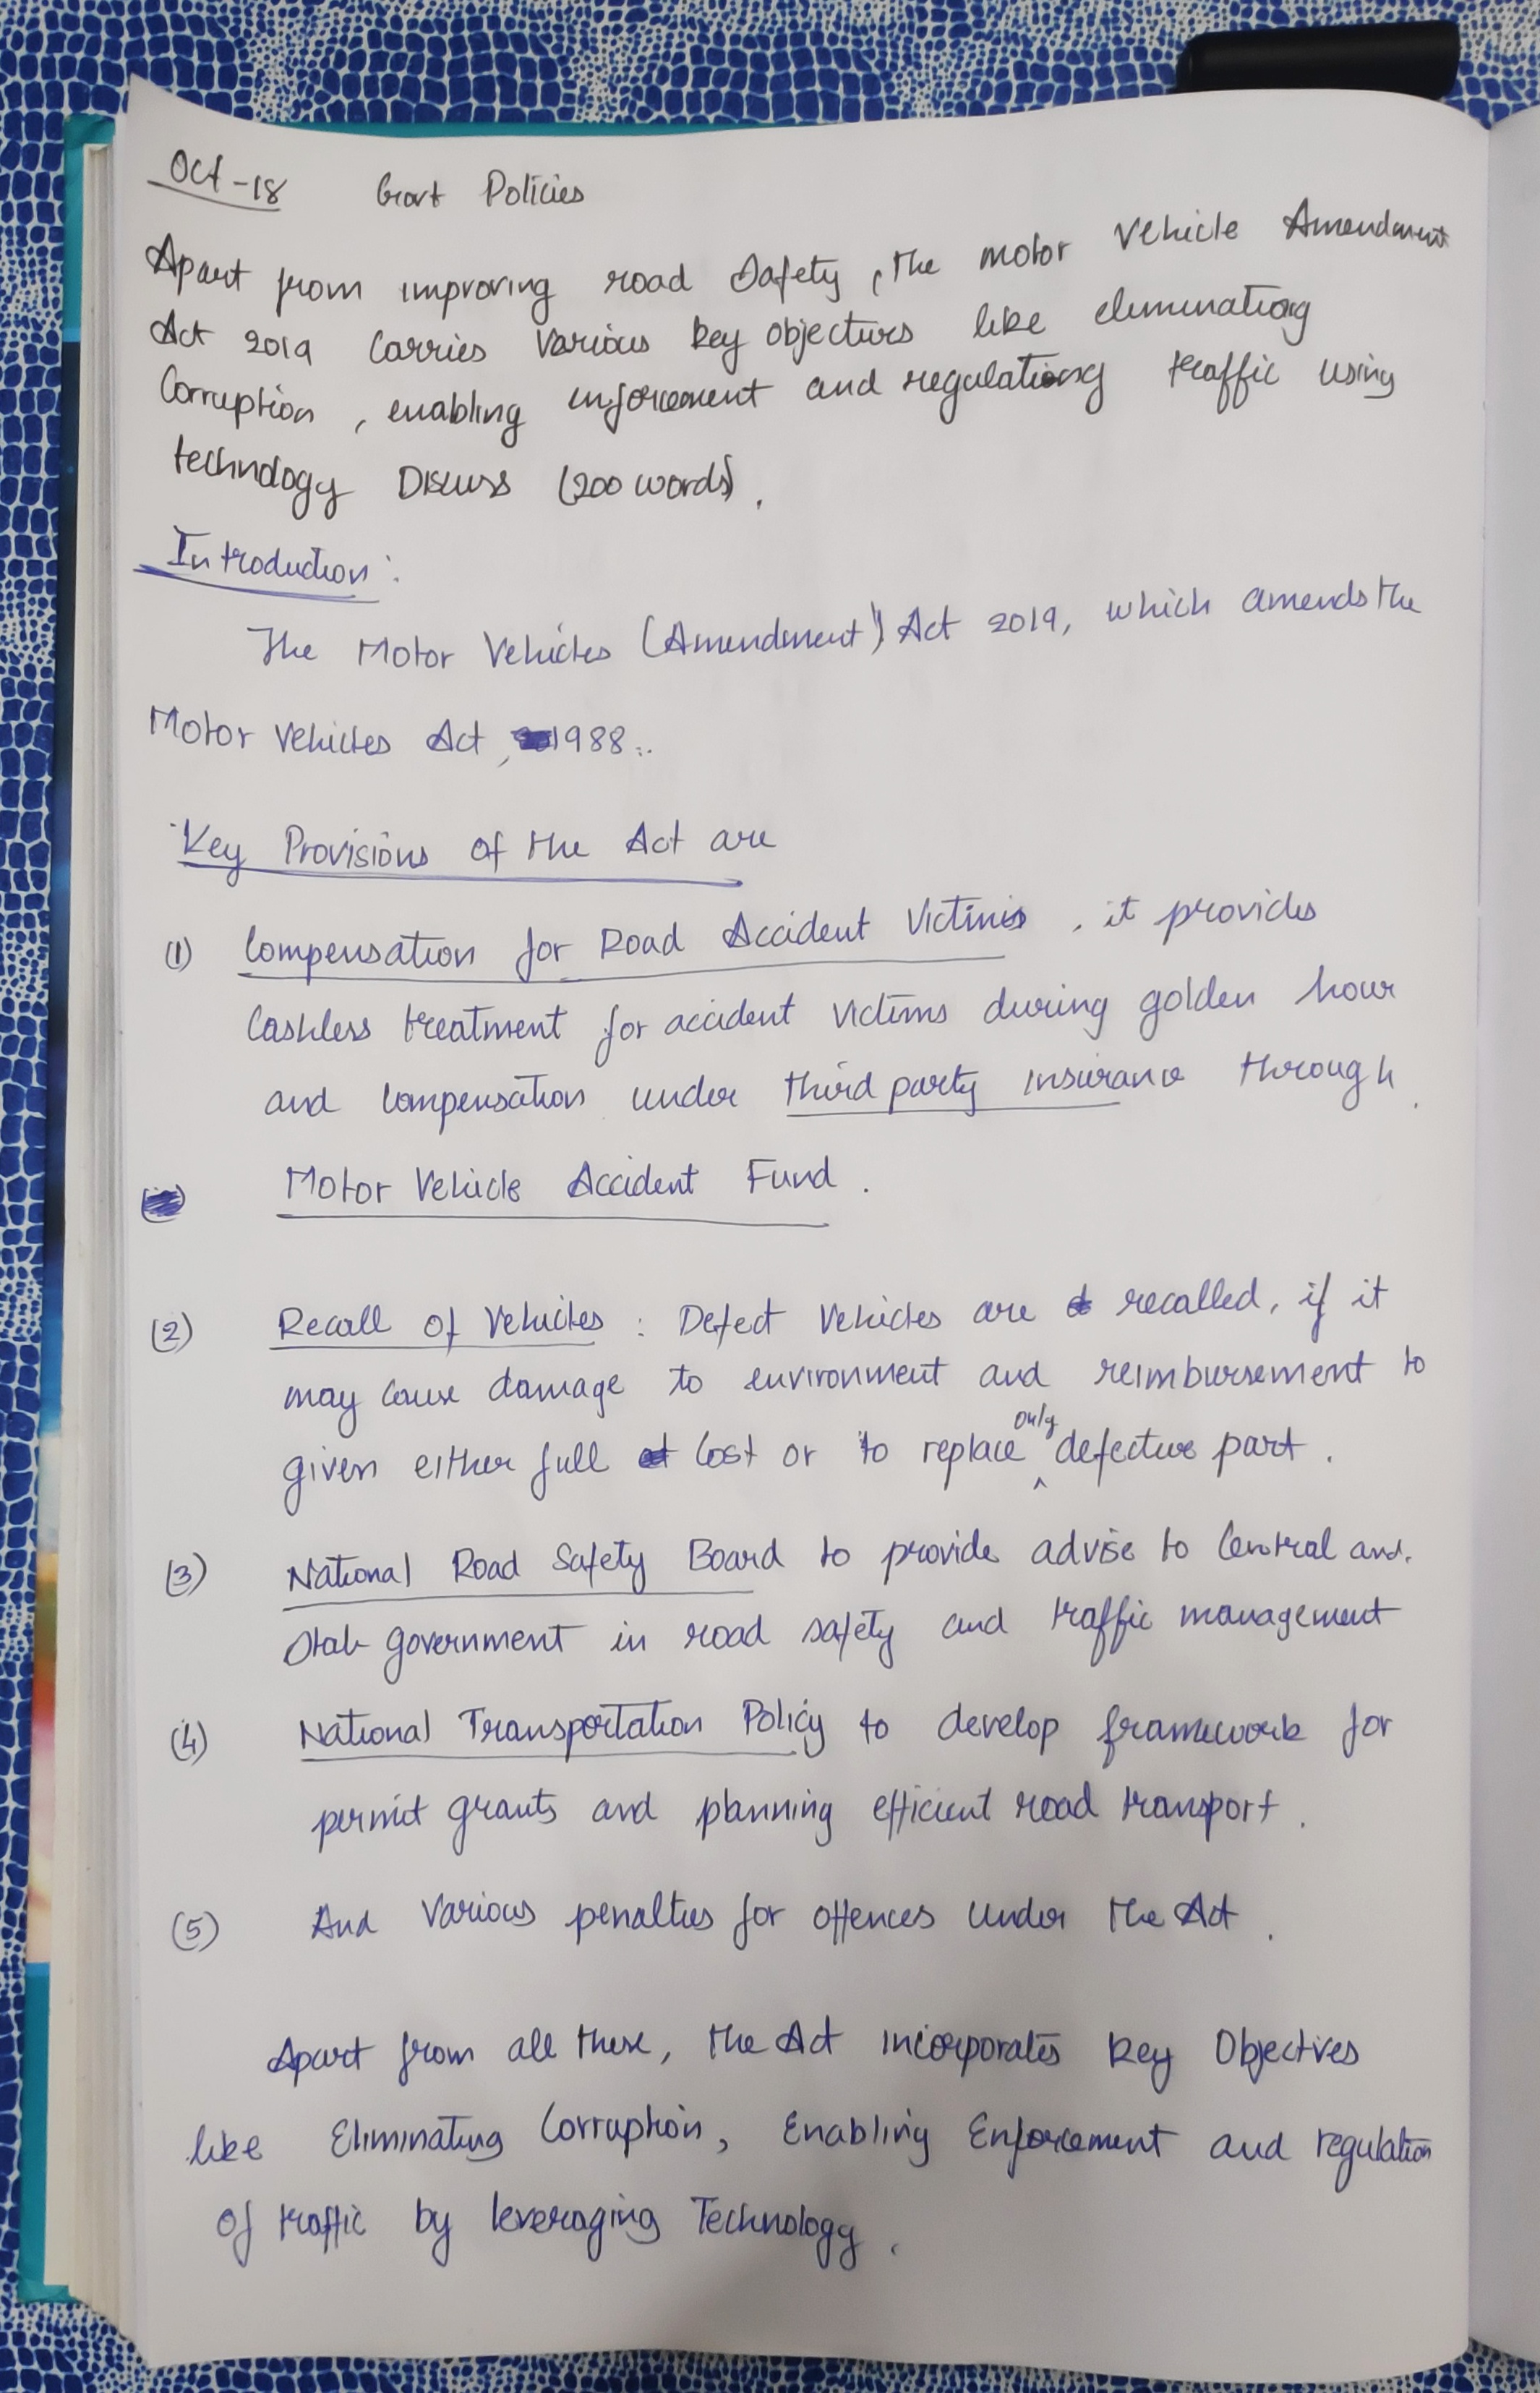 Oct-18 Govt Policies
Apart from improving road Safety, the motor Vehicle Amendment
Act 2019 Carries Various key objectives like eliminating
Corruption, enabling enforcement and regulating traffic using
technology Discuss (200 words).
Introduction:
The Motor Vehicles (Amendment) Act 2019, which amends the
Motor Vehicles Act, 1988.
Key Provisions of the Act are
(1) Compensation for Road Accident Victims, it provides
Cashless treatment for accident victims during golden hour
and compensation under third party insurance through
Motor Vehicle Accident Fund.
(2) Recall of Vehicles: Defect Vehicles are recalled, if it
may cause damage to environment and reimbursement to
given either full cost or to replace only defective part.
(3) National Road Safety Board to provide advise to Central and
State government in road safety and traffic management
(4) National Transportation Policy to develop framework for
permit grants and planning efficient road transport.
(5) And Various penalties for offences under the Act.
Apart from all these, the Act incorporates key Objectives
like Eliminating Corruption, Enabling Enforcement and regulation
of traffic by leveraging Technology.